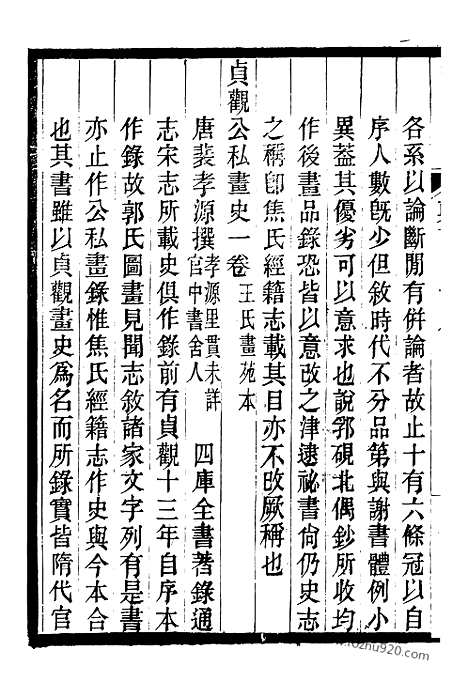 各系以論斷閒有倂論者故止十有六條冠以自
序人數旣少但敘時代不分品第與謝書體例小
異葢其優劣可以意求也說郛硯北偶鈔所收均
作後畫品錄恐皆以意改之津逮祕書尙仍史志
之稱卽焦氏經籍志載其目亦不攺厥稱也
貞觀公私畫史一卷王氏畫苑本
唐裴孝源撰孝源里貫未詳官中書舍人 四庫全書著錄通
志宋志所載史俱作錄前有貞觀十三年自序本
作錄故郭氏圖畫見聞志敘諸家文字列有是書
亦止作公私畫錄惟焦氏經籍志作史與今本合
也其書雖以貞觀畫史爲名而所錄實皆隋代官
www.fozhu920.com